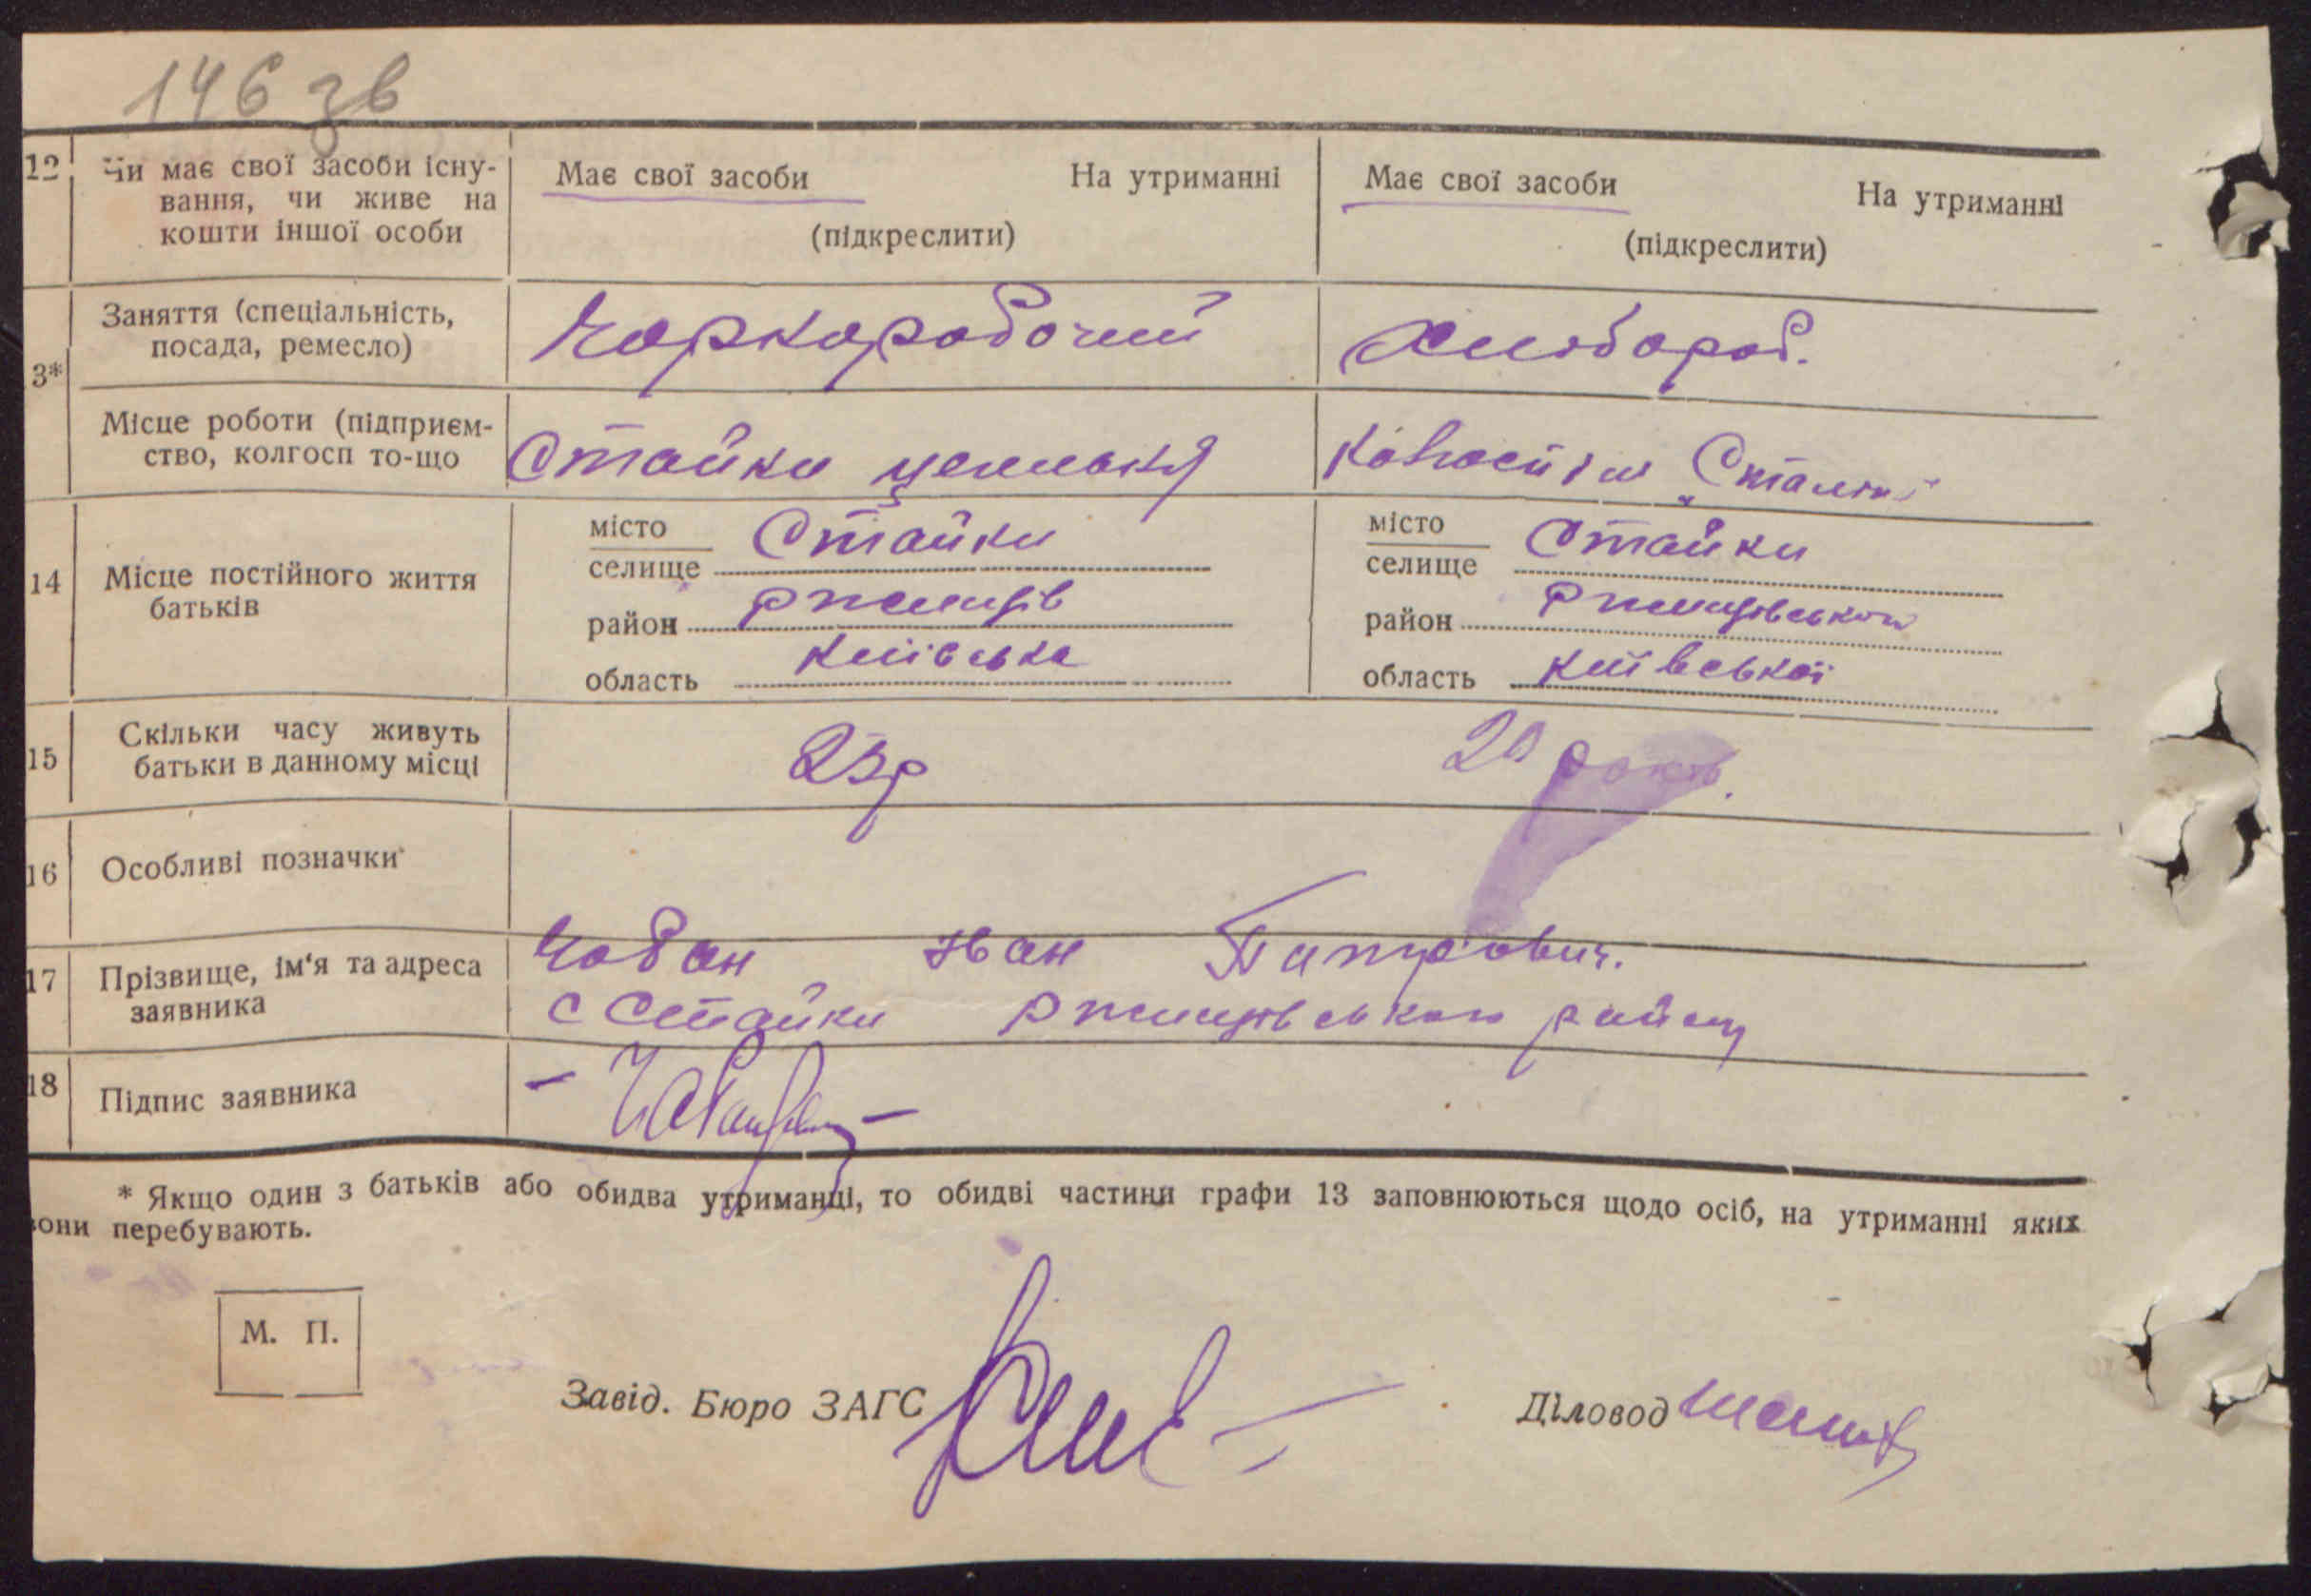 146 зв
12 Чи має свої засоби існу- Має свої засоби На утриманні Має свої засоби На утриманні
вання, чи живе на
кошти іншої особи (підкреслити) (підкреслити)
3* Заняття (спеціальність, Чорноробочий Хлібороб.
посада, ремесло)
Місце роботи (підприєм- Стайки Сталін
ство, колгосп то-що
14 Місце постійного життя місто Стайки місто Стайки
батьків селище селище
район Ржищів район Ржищівського
область Київська область Київської
15 Скільки часу живуть 23р 20 років.
батьки в данному місці
16 Особливі позначки
17 Прізвище, ім'я та адреса Чабан Іван
заявника с Стайки Ржищівського району
18 Підпис заявника
* Якщо один з батьків або обидва утриманці, то обидві частини графи 13 заповнюються щодо осіб, на утриманні яких
вони перебувають.
М. П.
Завід. Бюро ЗАГС Діловод